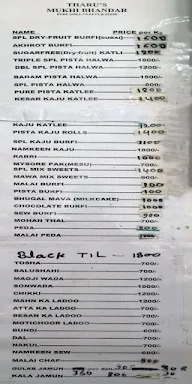 THARU'S
MUKUR BHANDAR
NAME PRICE per Kg
SPL DRY-FRUIT BURFI 1600
AKHROT BURFI 1600
SUGARFREE(Dry-fruit) KATLI
TRIPLE SPL PISTA HALWA 1800/-
DBL SPL PISTA HALWA 1200/-
BADAM PISTA HALWA 1500/-
SPL PISTA HALWA 800/-
PURE PISTA KATLI
KESAR KAJU KATLI 1400
KAJU KATLI 1200
PISTA KAJU ROLLS 1400
SPL KAJU BURFI 1100
NAMKEEN KAJU 1800/-
RABRI
MYSORE PAK(MESU) 700/-
SPL MIX SWEETS 1400
MAWA MIX SWEETS 900/-
MALAI BURFI
PISTA BURFI
BHUGAL MAVA (MILKCAKE)
CHOCOLATE BURFI
SEW BURFI
MOHAN THAL 700/-
PEDA 800
MALAI PEDA
Black TIL - 1800
TOSHA 700/-
BALUSHAHI 700/-
MAGJI WADA 1200/-
SONWADA 1000/-
CHIKKI 1200/-
MAHN KA LADOO 1200/-
ATTA KA LADOO 700/-
BESAN KA LADOO 700/-
MOTICHOOR LADOO 700/-
BUNDI 600/-
DAL 700/-
NAKUL 700/-
NAMKEEN SEW 600/-
MALAI CHAP
GULAB JAMUN
KALA JAMUN 360